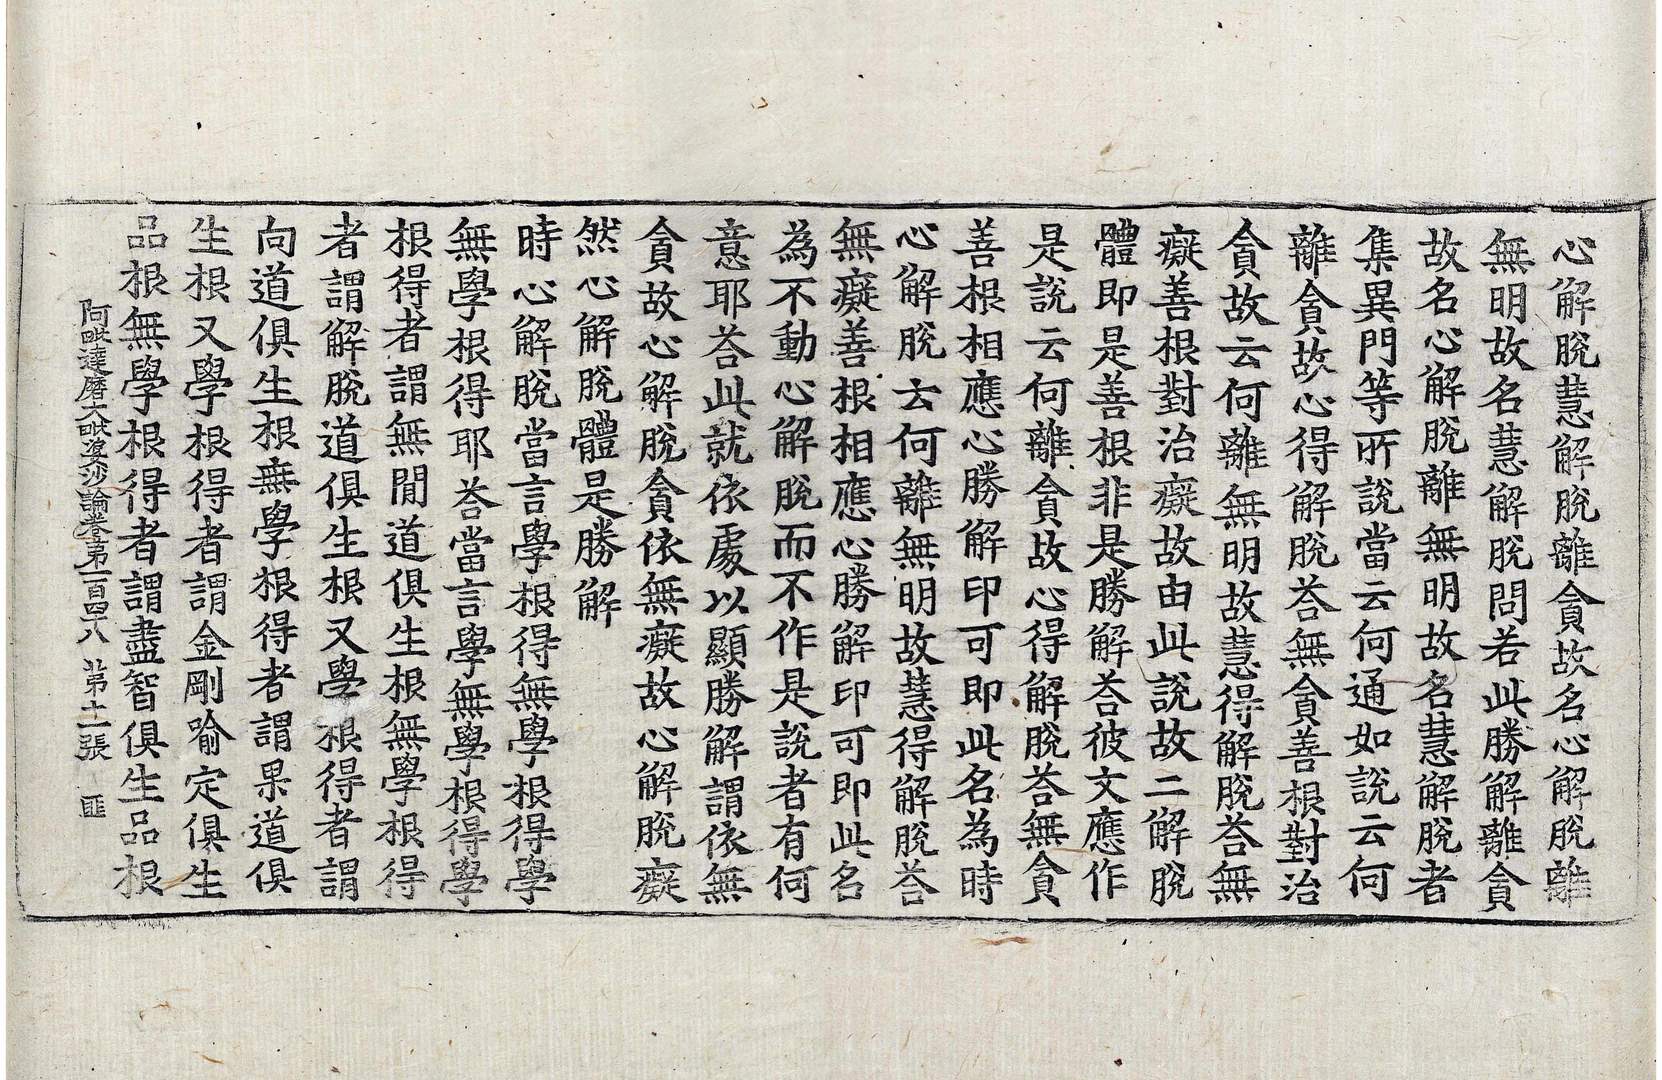 心解脫慧解脫離貪故名心解脫離
無明故名慧解脫問若此勝解離貪
故名心解脫離無明故名慧解脫者
集異門等所說當云何通如說云何
離貪故心得解脫荅無貪善根對治
貪故云何離無明故慧得解脫荅無
癡善根對治癡故由此說故二解脫
體即是善根非是勝解荅彼文應作
是說云何離貪故心得解脫荅無貪
善根相應心勝解印可即此名為時
心解脫云何離無明故慧得解脫荅
無癡善根相應心勝解印可即此名
為不動心解脫而不作是說者有何
意耶荅此就依處以顯勝解謂依無
貪故心解脫貪依無癡故心解脫癡
然心解脫體是勝解
時心解脫當言學根得無學根得學
無學根得耶荅當言學無學根得學
根得者謂無閒道俱生根無學根得
者謂解脫道俱生根又學根得者謂
向道俱生根無學根得者謂果道俱
生根又學根得者謂金剛喻定俱生
品根無學根得者謂盡智俱生品根
阿毗達磨大毗婆沙論卷第一百四十八 第十二張 匪